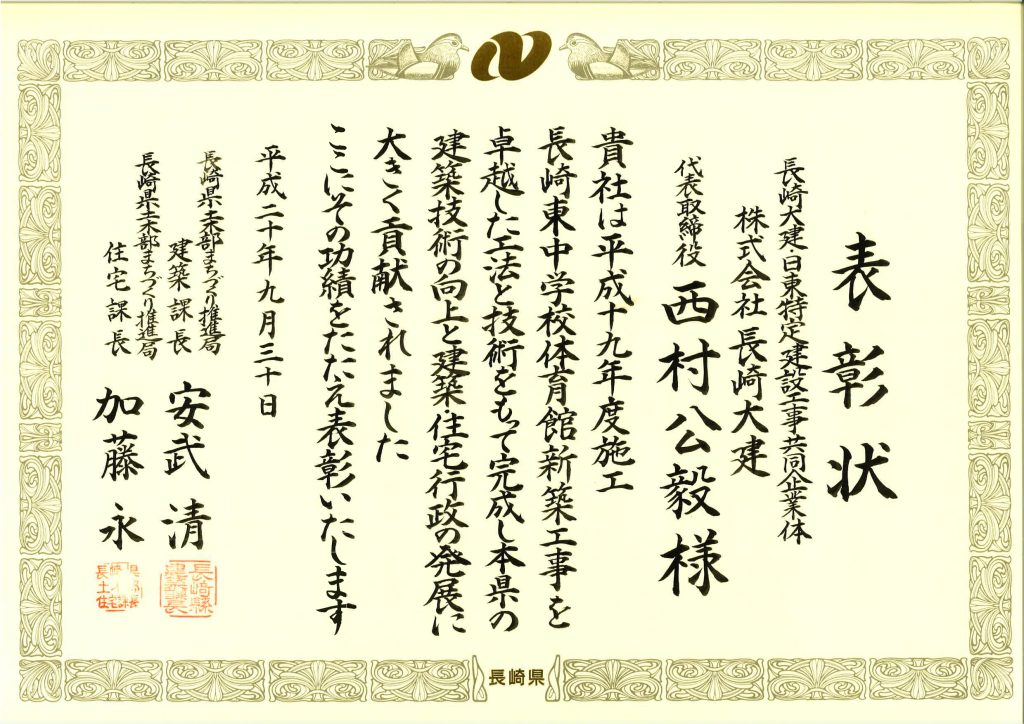 表彰状
長崎大建・日東特定建設工事共同企業体
株式会社 長崎大建
代表取締役 西村公毅様
貴社は平成十九年度施工
長崎東中学校体育館新築工事を
卓越した工法と技術をもって完成し本県の
建築技術の向上と建築・住宅行政の発展に
大きく貢献されました
ここにその功績をたたえ表彰いたします
平成二十年九月三十日
長崎県土木部まちづくり推進局
建築課長 安武 清
長崎県土木部まちづくり推進局
住宅課長 加藤 永
長崎県